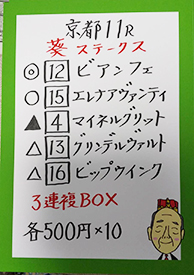 京都11R
葵ステークス
◎12ビアンフェ
○15エレナアヴァンティ
▲4マイネルグリット
△13グリンデルヴァルト
△16ビップウインク
3連複BOX
各500円×10